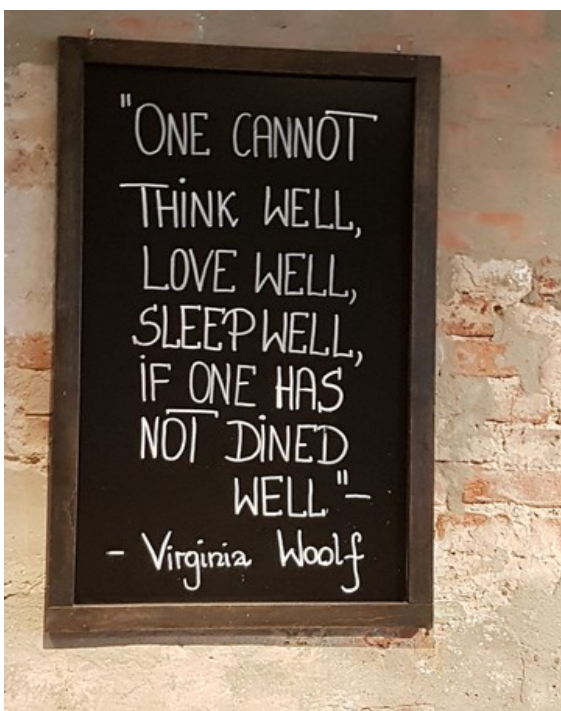 "ONE CANNOT
THINK WELL,
LOVE WELL,
SLEEP WELL,
IF ONE HAS
NOT DINED
WELL"-
- Virginia Woolf